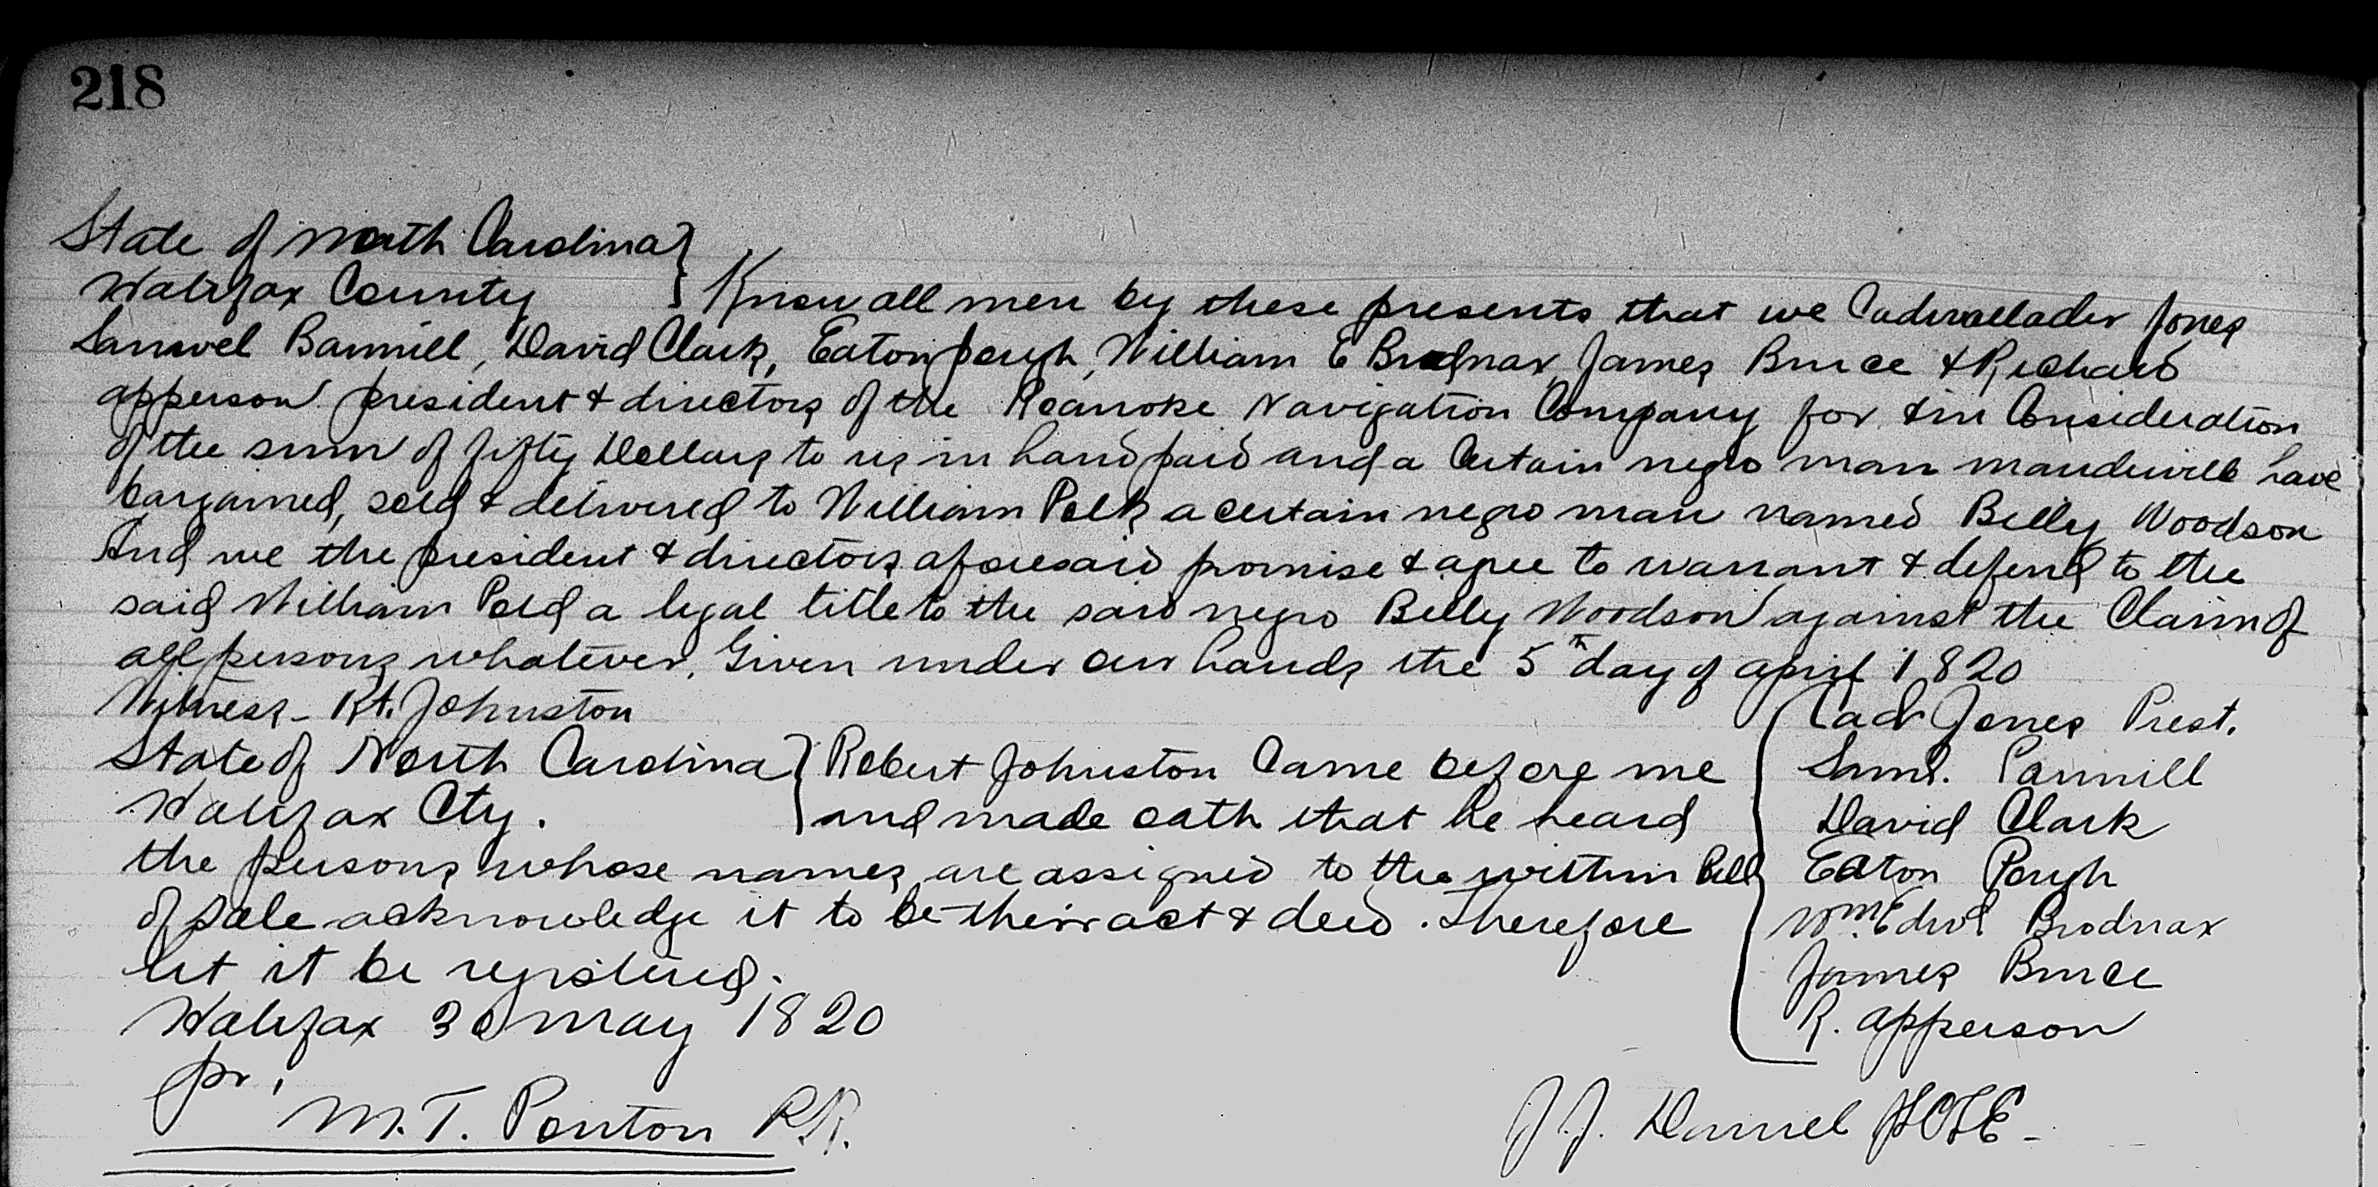 218
State of North Carolina }
Halifax County } Know all men by these presents that we Cadwallader Jones
Samuel Bannill, David Clark, Eaton Pough, William E Brodnax, James Bruce & Richard
apperson president & directors of the Roanoke Navigation Company for & in Consideration
of the sum of fifty Dollars to us in hand paid and a Certain negro man mandeville have
bargained, sold & delivered to William Polk a certain negro man named Billy Woodson
And we the president & directors aforesaid promise & agree to warrant & defend to the
said William Pold a legal title to the said negro Billy Woodson against the Claim of
all persons whatever. Given under our hands the 5th day of april 1820
Witness - Rt. Johnston
Cadr Jones Prest.
State of North Carolina } Robert Johnston Came before me
Saml. Pannill
Halifax Cty. } and made oath that he heard
David Clark
the persons whose names are assigned to the within Bill
Eaton Pough
of Sale acknowledge it to be their act & deed. Therefore
Wm. Edwd Brodnax
let it be registered.
James Bruce
Halifax 30 May 1820
R. apperson
pr.
M. T. Ponton R.R.
J. J. Daniel JSCLE -